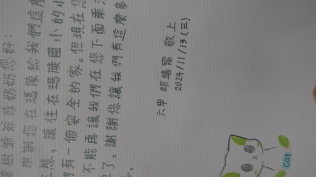 爺爺或奶奶您好:
謝謝您在瑪陵給我們這麼
態,讓住在瑪陵國小的小
有一個安全的家。但現在您
不能再讓我們在您下面乘
了。謝謝您讓我們有這麼多
六甲 邱 敬上
2024/11/13(三)
cat